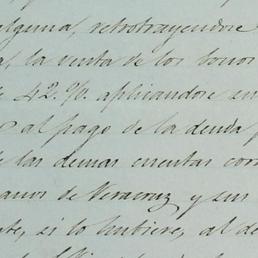 alguna, retrotrayendose
, la venta de los bonos
42 % aplicandose
al pago de la deuda
de las demas cuentas
de Veracruz y sus
, si lo hubiere, al